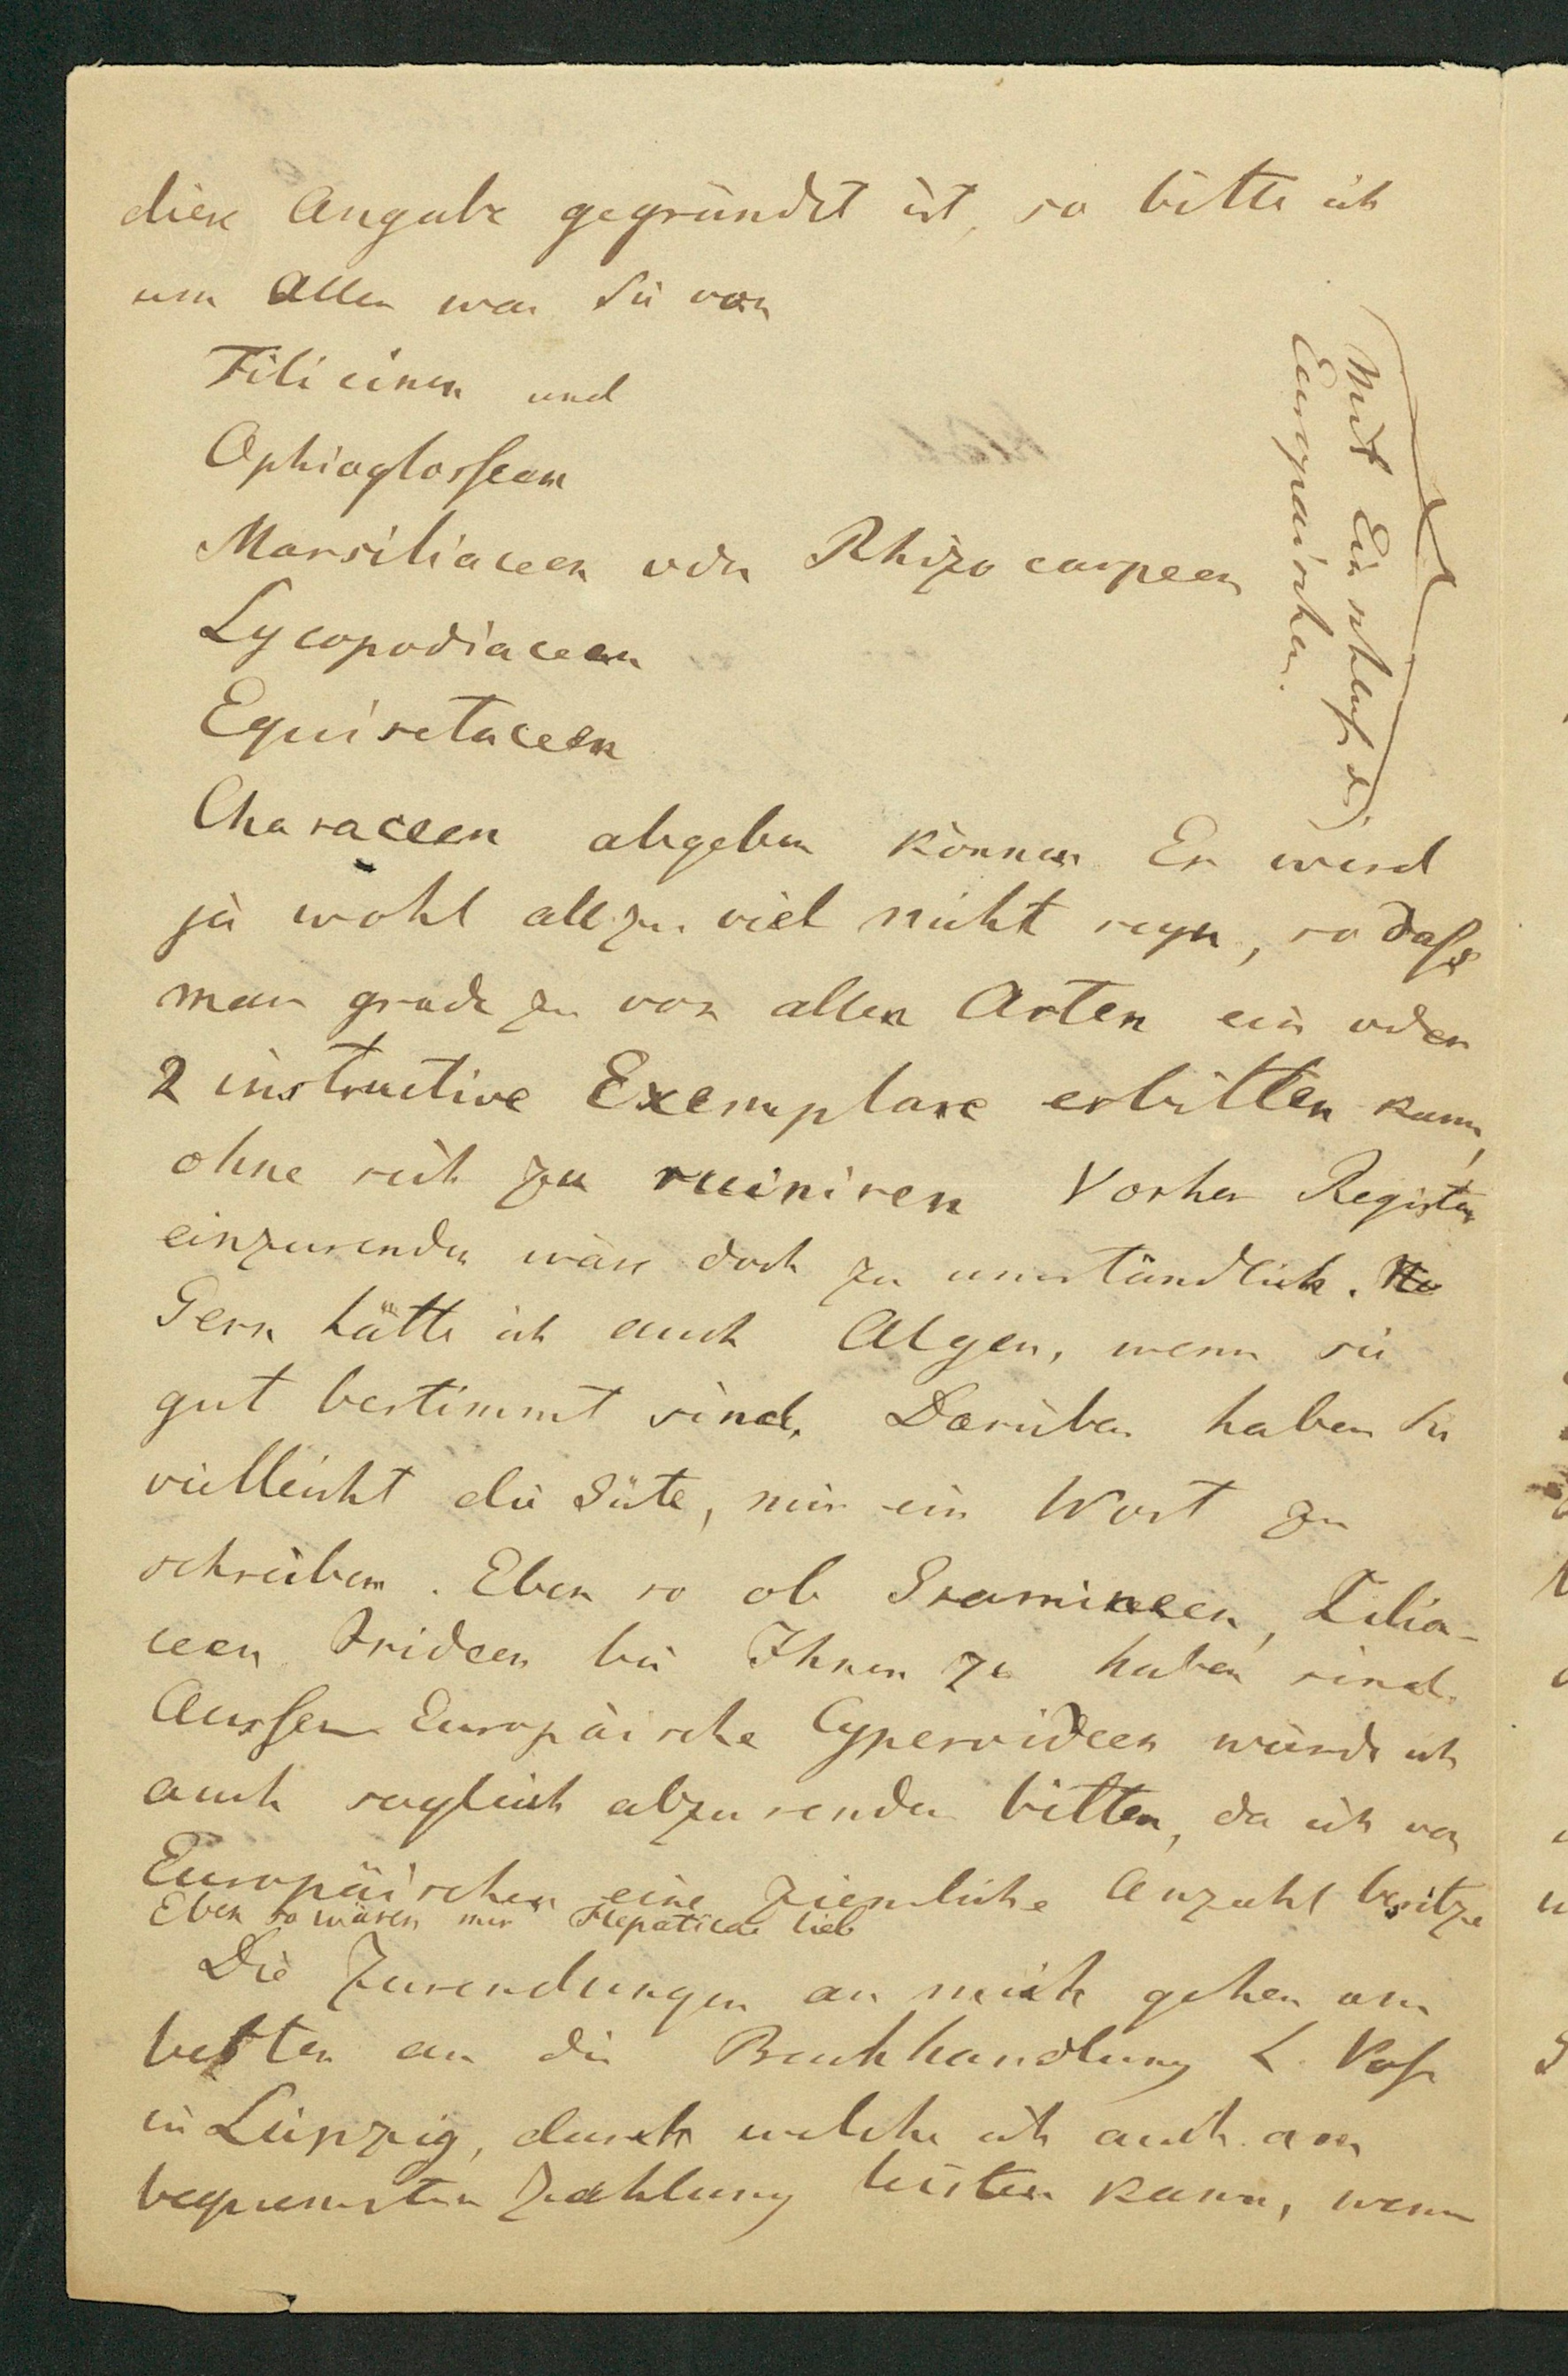 diese Angabe gegründet ist, so bitte ich
um Alles was Sie von
Filicinen und
Ophioglosseen
Marsiliaceen oder Rhizocarpeen
Lycopodiaceen
Equisetaceen
Mit Einschluß der
Europäischen.
Characeen abgeben können Es wird
ja wohl allzu viel nicht seyn, so daß
man gradezu von allen Arten ein oder
2 instructive Exemplare erbitten kann,
ohne sich zu ruiniren Vorher Register
einzusenden wäre doch zu umständlich.
Gern hätte ich auch Algen, wenn sie
gut bestimmt sind. Darüber haben Sie
vielleicht die Güte, mir ein Wort zu
schreiben. Eben so ob Gramineen, Lilia-
ceen Irideen bei Ihnen zu haben sind.
Ausser Europäische Cyperoideen würde ich
auch sogleich abzusenden bitten, da ich von
Europäischen eine ziemliche Anzahl besitze
Eben so wären mir Hepaticae lieb
Die Zusendungen an mich gehen am
besten an die Buchhandlung L. Voß
in Leipzig, durch welche ich auch am
bequemsten Zahlung leisten kann, wenn